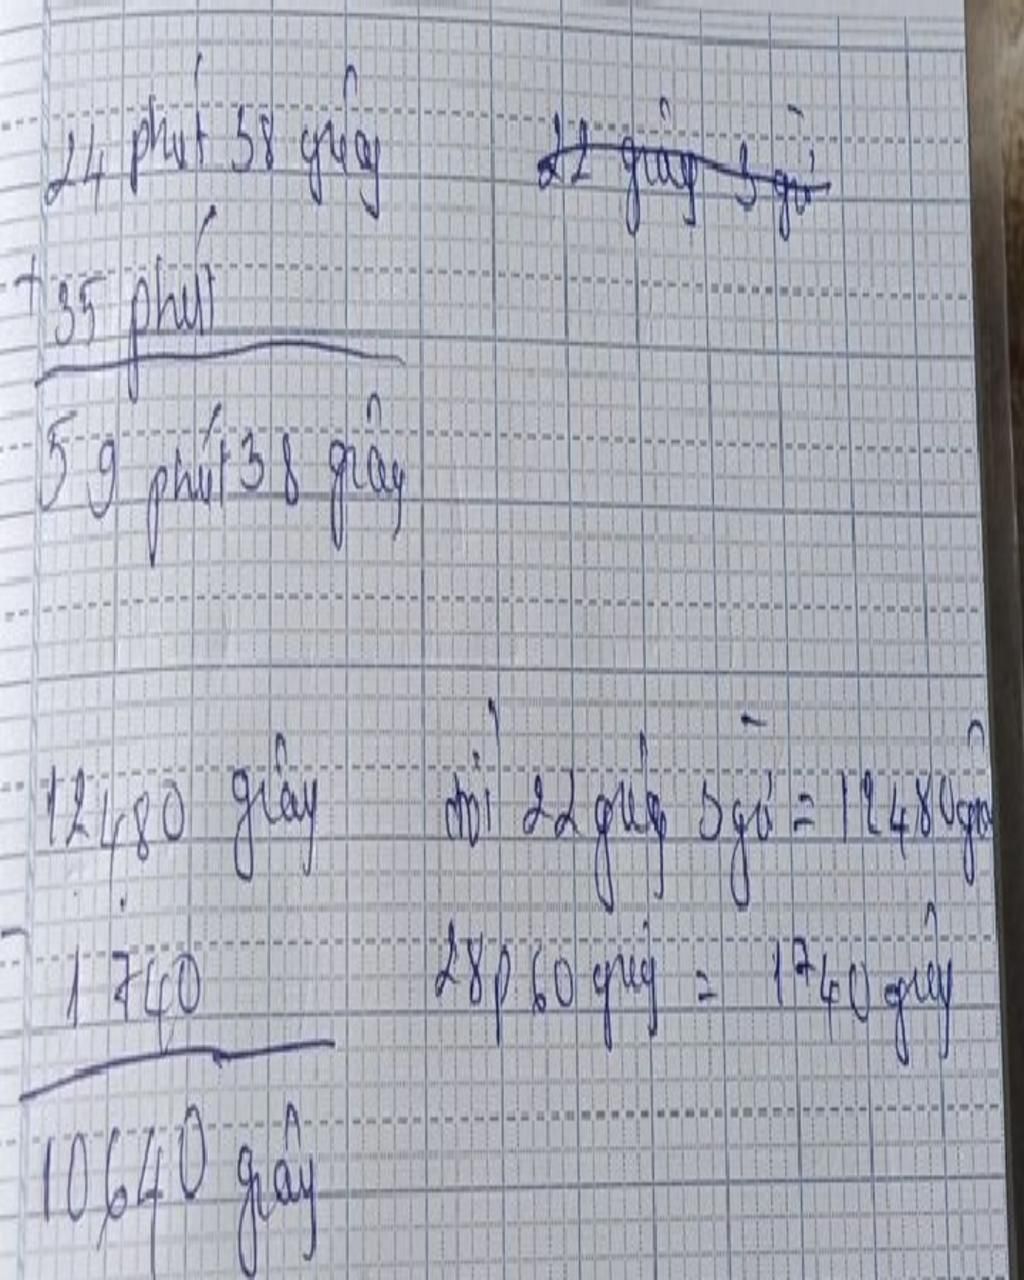 24 phút 38 giây
22 giây 3 giờ
+ 35 phút
59 phút 38 giây
12480 giây
đổi 22 giây 3 giờ = 12480 giâ
- 1740
28p 60 giây = 1740 giây
10640 giây